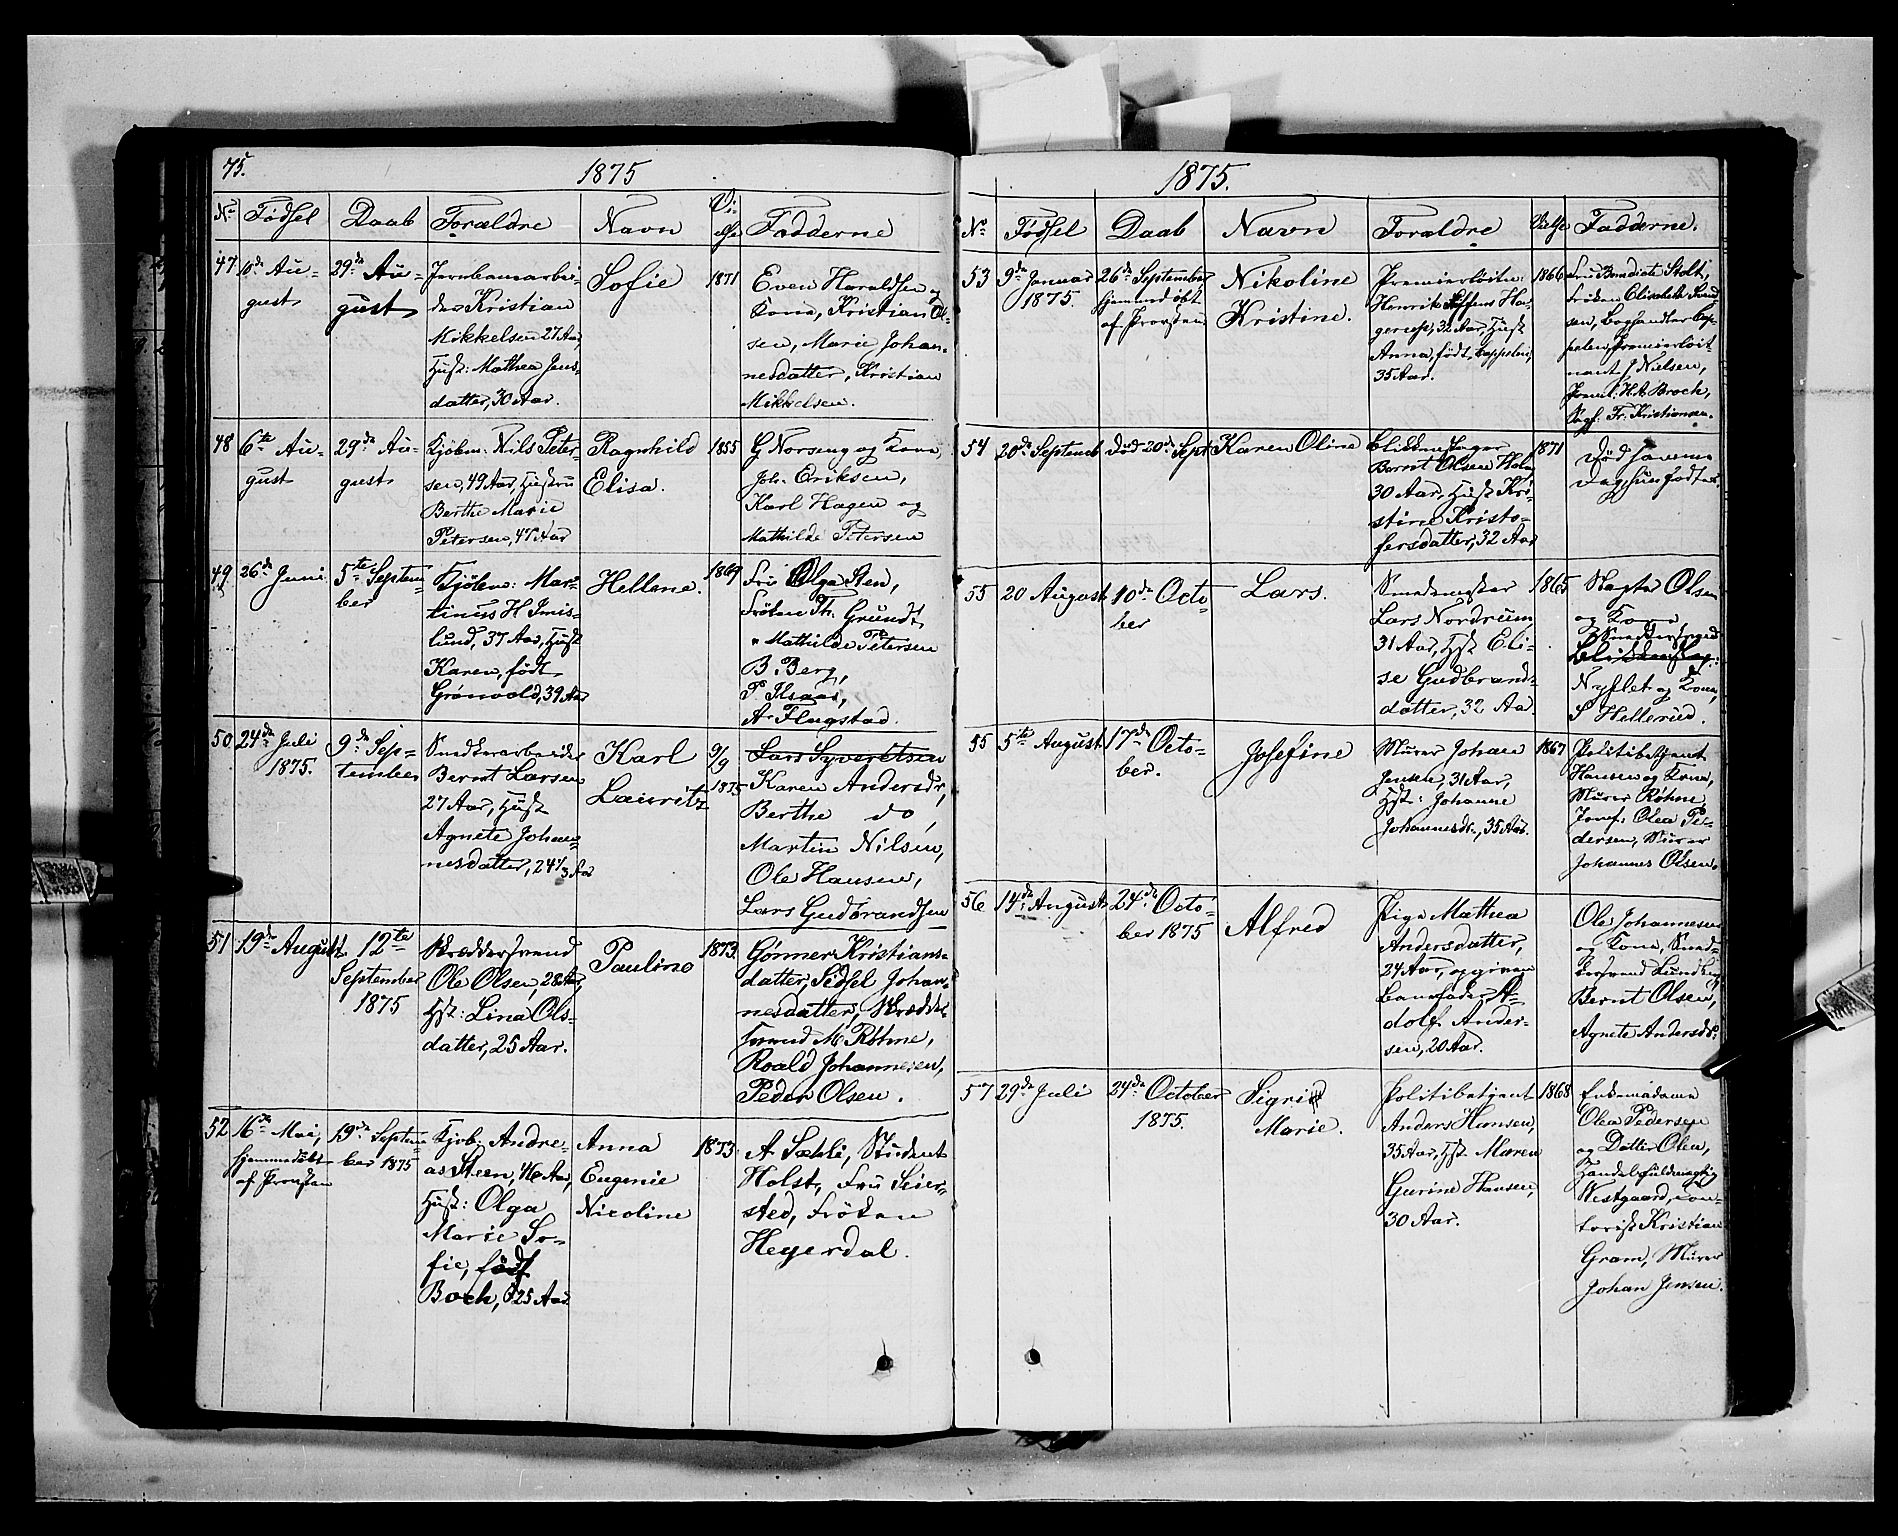 75.
1875
No Fødsel Daab Forældre Navn Vielse Fadderne
47 10de August
29de August
Jernbanearbeider Kristian
Mikkelsen 27 Aar
Hust: Mathea Jensdatter, 30 Aar.
Sofie
1871
Even Haraldsen og
Kona, Kristian Olsen, Marie Johannesdatter, Kristian
Mikkelsen.
48 6te August
29de August
Kjøbm: Nils Petersen, 49 Aar, Hustru
Berthe Marie
Petersen, 47 Aar
Ragnhild
Elisa.
1855
G Norseng og Kone,
Joh. Eriksen,
Karl Hagen og
Mathilde Petersen
49 26de Juni
5te September
Kjøbm: Martinus H Imislund, 37 Aar, Hust
Karen, født
Grønvold, 39 Aar
Hellene.
1869
Fru Olga Sten,
Frøken Th. Grundt
" Mathilde Petersen
B. Berg,
P. Ilsaas,
A. Flugstad.
50 24de Juli
1875.
9de September
Bernt Larsen
27 Aar, Hust
Agnete Johannesdatter, 24 1/3 Aar
Karl
Lauritz
9/9
1875
Lars Syvertsen
Karen Andersdr,
Berthe do,
Martin Nilsen,
Ole Hansen,
Lars Gudbrandsen
51 19de August
12te
September
1875
Skræddersvend
Ole Olsen, 28 Aar,
Hst: Lina Olsdatter, 25 Aar.
Pauline
1873.
Gønner Kristiansdatter, Sidsel Johannesdatter, Skrædder
svend M Røhne,
Roald Johannesen,
Peder Olsen.
52 16de Mai,
hjemmedøbt
af Provsten
19de September 1875
Kjøb: Andreas Steen, 46 Aar,
Hust: Olga
Marie Sofie, født
Boch, 25 Aar
Anna
Eugenie
Nicoline
1873
A Sæhli, Student
Holst, Fru Seiersted, Frøken
Heyerdal.
1875.
No Fødsel Daab Navn Forældre Vielse Fadderne.
53 9de Januar
1875.
26de September
hjemmedøbt
af Provsten
Nikoline
Kristine.
Premierløitn:
Henrik Steffens Hagerup, 32 Aar, Hust
Anna, født Cappelen,
35 Aar.
1866
Fru Benedicte Stolt,
Frøken Elisabeth
Boghandler Cappelen, Premierløitnant J Nielsen,
Preml: H.A. Broch,
Fr. Kristiansen.
54 20de Septemb
død 20de Sept
Karen Oline
Blikkenslager
Bernt Olsen
30 Aar, Hust Kristine Kristofersdatter, 32 Aar
1871
Død samme
Dag, hun født er.
55 20 August
10de October
Lars.
Smedmester
Lars Nordrum,
31 Aar, Hst Elise Gudbrandsdatter, 32 Aar
1865
Olsen
og Kone
Blikkenslag:
Nyflet og Kone,
S Hellerud.
55 5te August
17de October.
Josefine
Murer Johan
Jensen, 31 Aar,
Hst: Johanne
Johannesdr., 35 Aar.
1867
Politibetjent
Hansen og Kone,
Murer Røhne
Jomf: Olea Pedersen, Murer
Johannes Olsen.
56 14de August
24de October 1875
Alfred
Pige Mathea
Andersdatter,
24 Aar, opgiven
Barnefader Adolf Andersen, 20 Aar.
Ole Johannesen
og Kone,
Bernt Olsen,
Agnete Andersdr.
57 29de Juli
24de October
1875.
Sigrid
Marie.
Politibetjent
Anders Hansen,
35 Aar, Hst Maren
Gurine Hansen,
30 Aar.
1868
Enkemadame
Olea Pedersen
og Datter Olea,
Handelsfuldmægtig
Westgaard, Contorist Kristian
Gram, Murer
Johan Jensen.